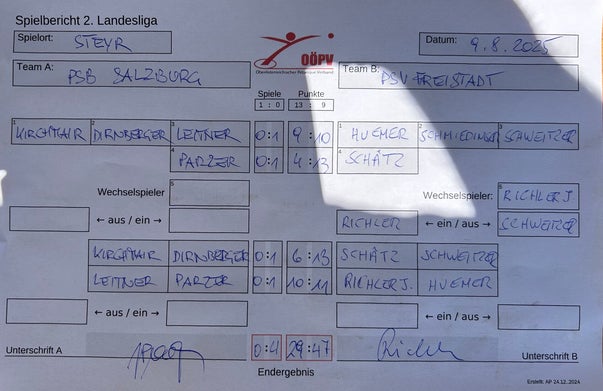 Spielbericht 2. Landesliga
Spielort: STEYR
OÖPV
Oberösterreichischer Pétanque Verband
Datum: 9.8.2025
Team A: PSB SALZBURG
Team B: PSV FREISTADT
Spiele Punkte
1 : 0 13 : 9
1 KIRCHMAIR 2 DIRNBERGER 3 LEITNER 0:1 9:10 1 HUEMER 2 SCHMIEDINGER 3 SCHWEITZER
4 PARZER 0:1 4:13 4 SCHÄTZ
Wechselspieler 5 Wechselspieler: 5 RICHLER J.
← aus / ein → RICHLER ← ein / aus → SCHWEITZER
KIRCHMAIR DIRNBERGER 0:1 6:13 SCHÄTZ SCHWEITZER
LEITNER PARZER 0:1 10:11 RICHLER J. HUEMER
← aus / ein → ← ein / aus →
Unterschrift A 0:4 29:47 Unterschrift B
Endergebnis
Erstellt: AP 24.12..2024